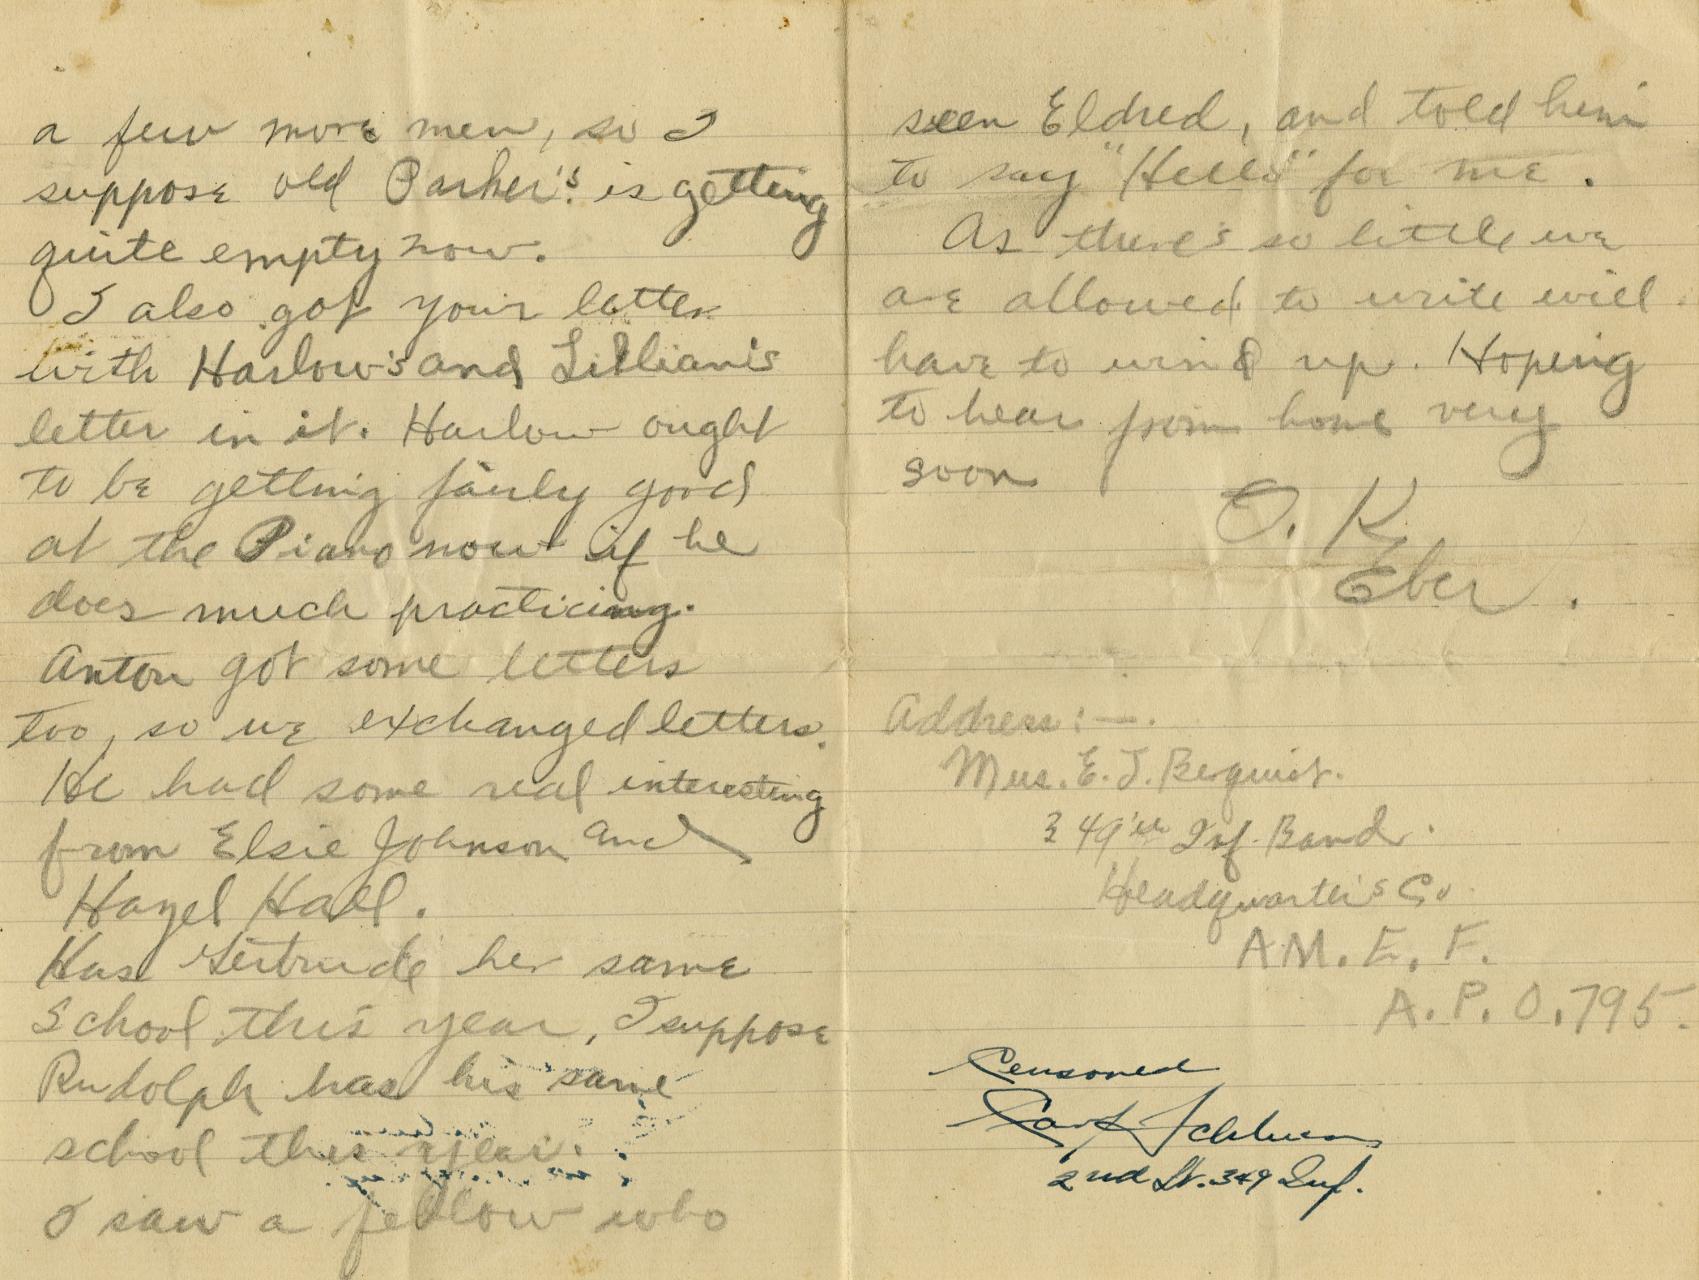 a few more men, so I
suppose old Parker's is getting
quite empty now.
I also got your letter
with Harlow's and Lillian's
letter in it. Harlow ought
to be getting fairly good
at the Piano now if he
does much practicing.
Anton got some letters
too, so we exchanged letters.
He had some real interesting
from Elsie Johnson and
Hazel Hall.
Has Gertrude her same
school this year, I suppose
Rudolph has his same
school this year.
I saw a fellow who
seen Eldred, and told him
to say "Hello" for me.
As there's so little we
are allowed to write will
have to wind up. Hoping
to hear from home very
soon
O. K.
Eber.
Address:—.
Mus. E. J. Berquist.
349'th Inf. Band.
Headquarter's Co.
AM. E. F.
A. P. O. 795.
Censored
2nd Lt. 349 Inf.